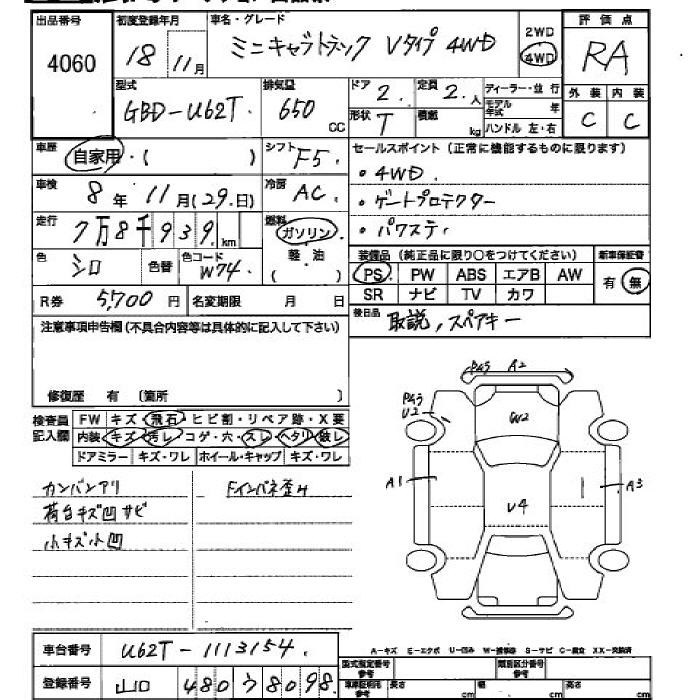 出品番号 初度登録年月 車名・グレード 2WD 評価点
4060 18 11月 ミニキャブトラック Vタイプ 4WD 4WD RA
型式 排気量 ドア 定員 ディーラー・並行 外装 内装
GBD-U62T. 650 cc 2. 2.人 モデル年式 年 C C
形状 T 積載 kg ハンドル 左・右
車歴 自家用・( ) シフト F5. セールスポイント(正常に機能するものに限ります)
車検 8年 11月(29.日) 冷房 AC. ・4WD.
・ゲートプロテクター
走行 7万8千939.km 燃料 ガソリン ・パワステ
軽・油
( )
色 シロ 色替 色コード W74. 装備品(純正品に限り○をつけてください) 新車保証書
PS PW ABS エアB AW 有 無
R券 5,700 円 名変期限 月 日 SR ナビ TV カワ
注意事項申告欄(不具合内容等は具体的に記入して下さい) 後日品 取説,スペアキー
修復歴 有 〔箇所 〕
検査員 FW キズ・飛石・ヒビ割・リペア跡・X要
記入欄 内装 キズ・汚レ・コゲ・穴・スレ・ヘタリ・敗レ
ドアミラー キズ・ワレ ホイール・キャップ キズ・ワレ
カンバンアリ Fインパネ歪み
荷台キズ凹サビ
小キズ小凹
A2
U2 W2
A1 A3
U4
車台番号 U62T-1113154.
登録番号 山口 480 78098.
A-キズ E-エクボ U-凹み W-補修跡 S-サビ C-腐食 XX-交換済
型式指定番号 参考 類別区分番号 参考
車車証明用 参考 長さ cm 幅 cm 高さ cm